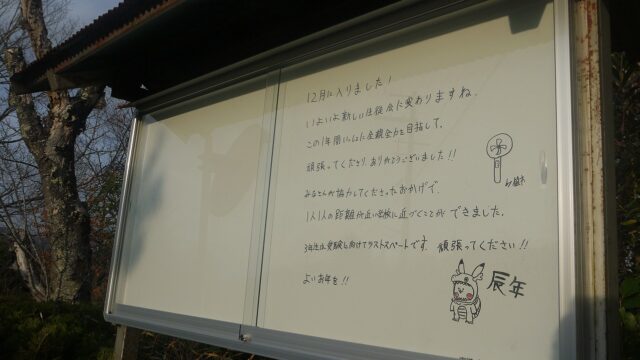 12月に入りました!
いよいよ新しい生徒会に変わりますね.
この1年間いっしょに全親全力を目指して,
頑張ってくださり ありがとうございました!!
みなさんが協力してくださったおかげで,
1人1人の距離が近い学校に近づくことが できました.
3年生は受験に向けてラストスパートです. 頑張ってください!!
よいお年を!!
辰年